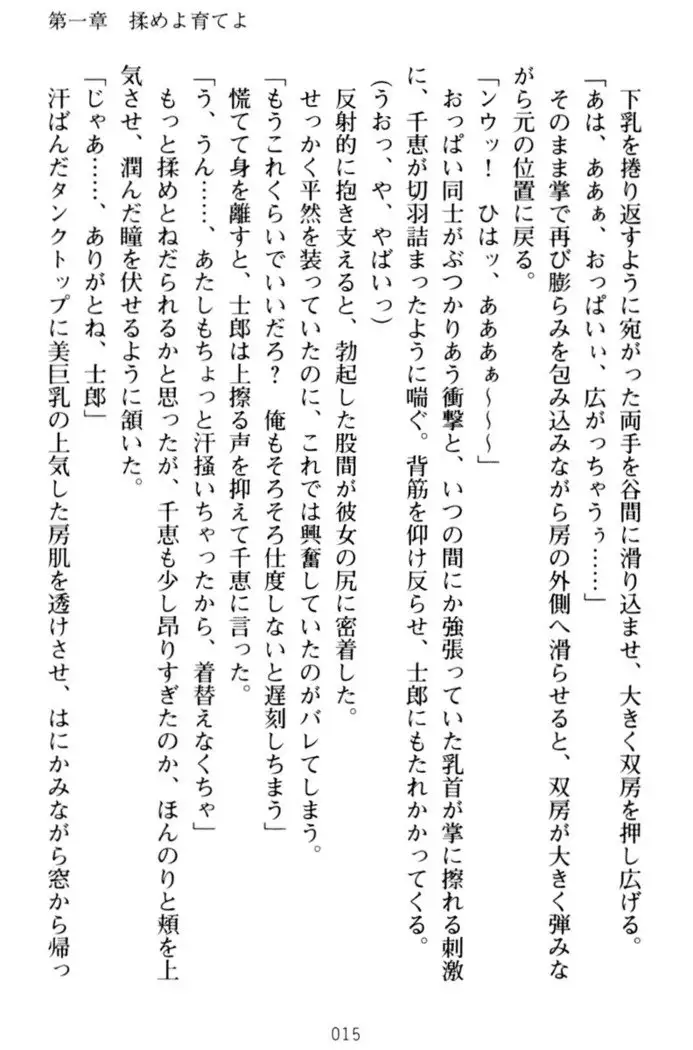 第一章　揉めよ育てよ
下乳を捲り返すように宛がった両手を谷間に滑り込ませ、大きく双房を押し広げる。
「あは、ああぁ、おっぱいぃ、広がっちゃうぅ……」
そのまま掌で再び膨らみを包み込みながら房の外側へ滑らせると、双房が大きく弾みな
がら元の位置に戻る。
「ンウッ！　ひはッ、あああぁ～～～」
おっぱい同士がぶつかりあう衝撃と、いつの間にか強張っていた乳首が掌に擦れる刺激
に、千恵が切羽詰まったように喘ぐ。背筋を仰け反らせ、士郎にもたれかかってくる。
(うおっ、や、やばいっ)
反射的に抱き支えると、勃起した股間が彼女の尻に密着した。
せっかく平然を装っていたのに、これでは興奮していたのがバレてしまう。
「もうこれくらいでいいだろ？　俺もそろそろ仕度しないと遅刻しちまう」
慌てて身を離すと、士郎は上擦る声を抑えて千恵に言った。
「う、うん……、あたしもちょっと汗掻いちゃったから、着替えなくちゃ」
もっと揉めとねだられるかと思ったが、千恵も少し昂りすぎたのか、ほんのりと頬を上
気させ、潤んだ瞳を伏せるように頷いた。
「じゃあ……、ありがとね、士郎」
汗ばんだタンクトップに美巨乳の上気した房肌を透けさせ、はにかみながら窓から帰っ
015